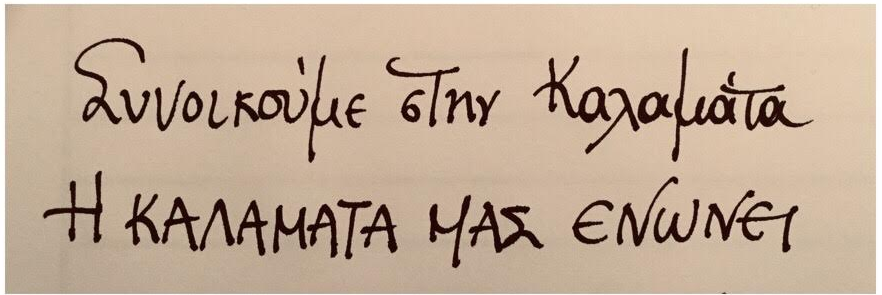 Συνοικούμε στην Καλαμάτα
Η ΚΑΛΑΜΑΤΑ ΜΑΣ ΕΝΩΝΕΙ